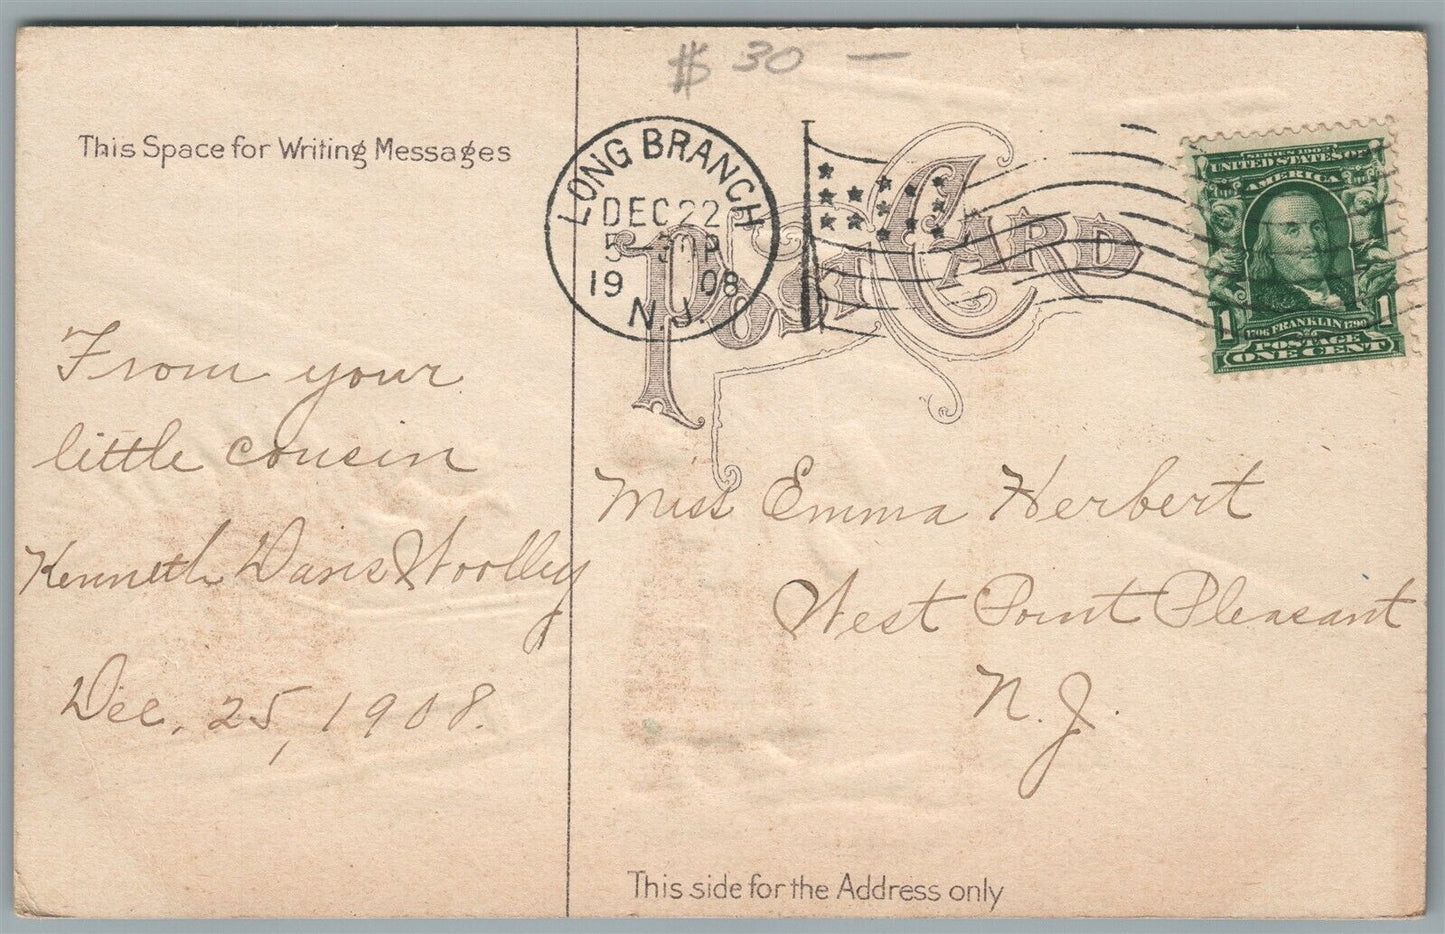 $ 30 —
This Space for Writing Messages
LONG BRANCH
DEC 22
5 30 P
19 08
N.J.
POST CARD
SERIES 1902
UNITED STATES OF
AMERICA
1 1
1706 FRANKLIN 1790
POSTAGE
ONE CENT
From your
little cousin
Kenneth Davis Woolley
Dec. 25, 1908.
Miss Emma Herbert
West Point Pleasant
N. J.
This side for the Address only